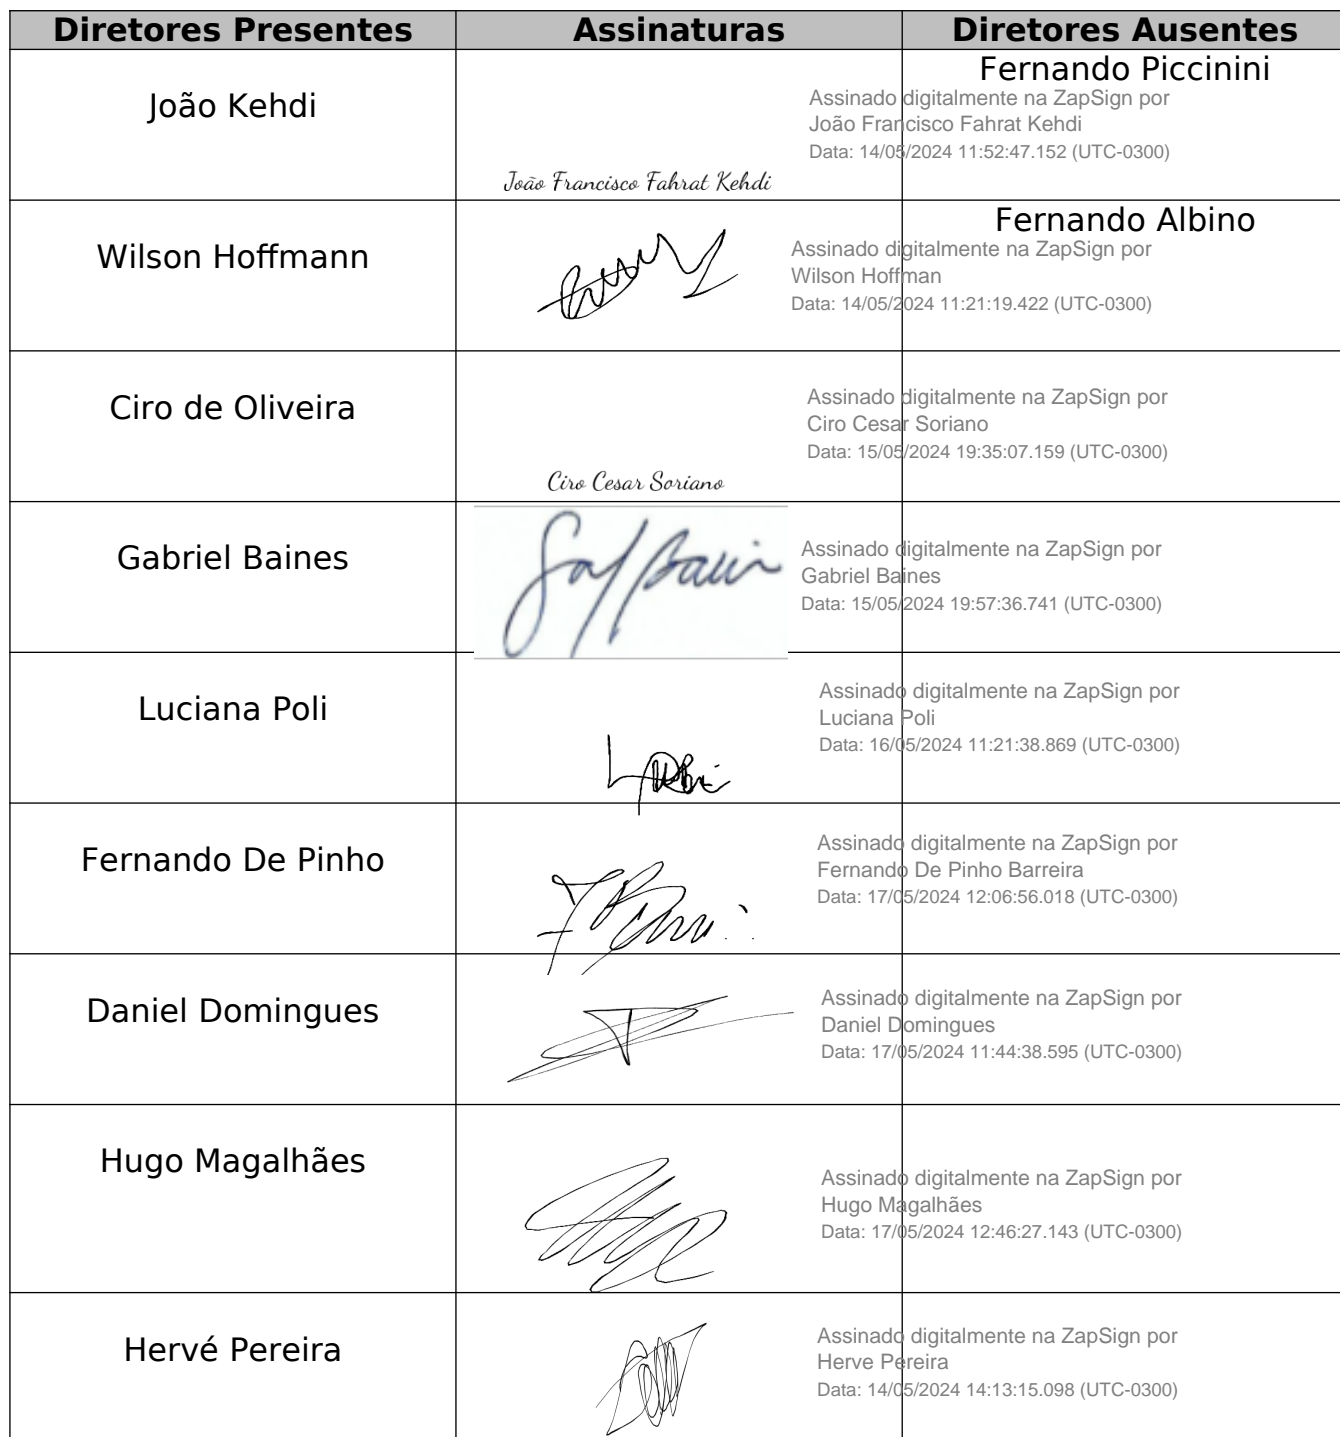 Diretores Presentes Assinaturas Diretores Ausentes
João Kehdi
João Francisco Fahrat Kehdi
Fernando Piccinini
Assinado digitalmente na ZapSign por
João Francisco Fahrat Kehdi
Data: 14/05/2024 11:52:47.152 (UTC-0300)
Wilson Hoffmann
Fernando Albino
Assinado digitalmente na ZapSign por
Wilson Hoffman
Data: 14/05/2024 11:21:19.422 (UTC-0300)
Ciro de Oliveira
Ciro Cesar Soriano
Assinado digitalmente na ZapSign por
Ciro Cesar Soriano
Data: 15/05/2024 19:35:07.159 (UTC-0300)
Gabriel Baines
Assinado digitalmente na ZapSign por
Gabriel Baines
Data: 15/05/2024 19:57:36.741 (UTC-0300)
Luciana Poli
Assinado digitalmente na ZapSign por
Luciana Poli
Data: 16/05/2024 11:21:38.869 (UTC-0300)
Fernando De Pinho
Assinado digitalmente na ZapSign por
Fernando De Pinho Barreira
Data: 17/05/2024 12:06:56.018 (UTC-0300)
Daniel Domingues
Assinado digitalmente na ZapSign por
Daniel Domingues
Data: 17/05/2024 11:44:38.595 (UTC-0300)
Hugo Magalhães
Assinado digitalmente na ZapSign por
Hugo Magalhães
Data: 17/05/2024 12:46:27.143 (UTC-0300)
Hervé Pereira
Assinado digitalmente na ZapSign por
Herve Pereira
Data: 14/05/2024 14:13:15.098 (UTC-0300)